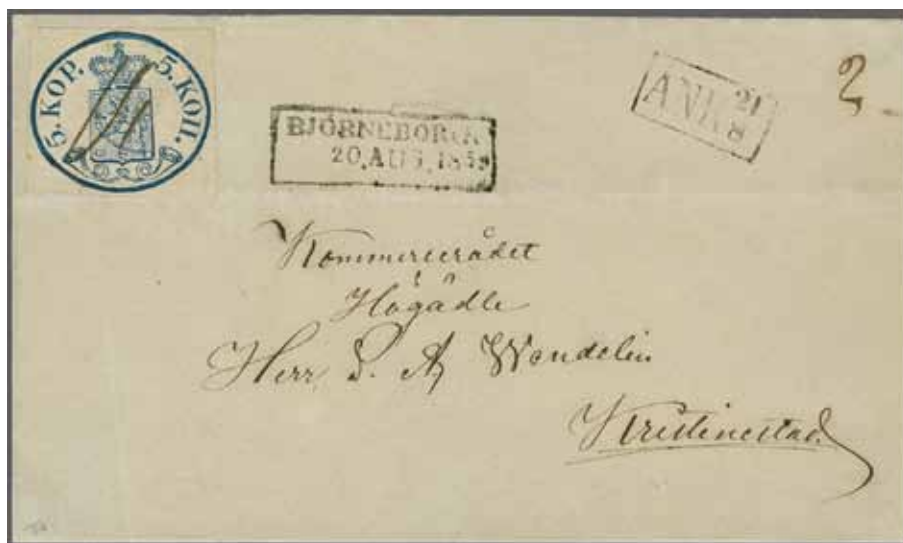 5. KOP. 5. КОП.
BJÖRNEBORG
20.AUG.1859
ANK 21/8
2
Kommerserådet
Högädle
Herr P. A. Wendelin
Kristinestad